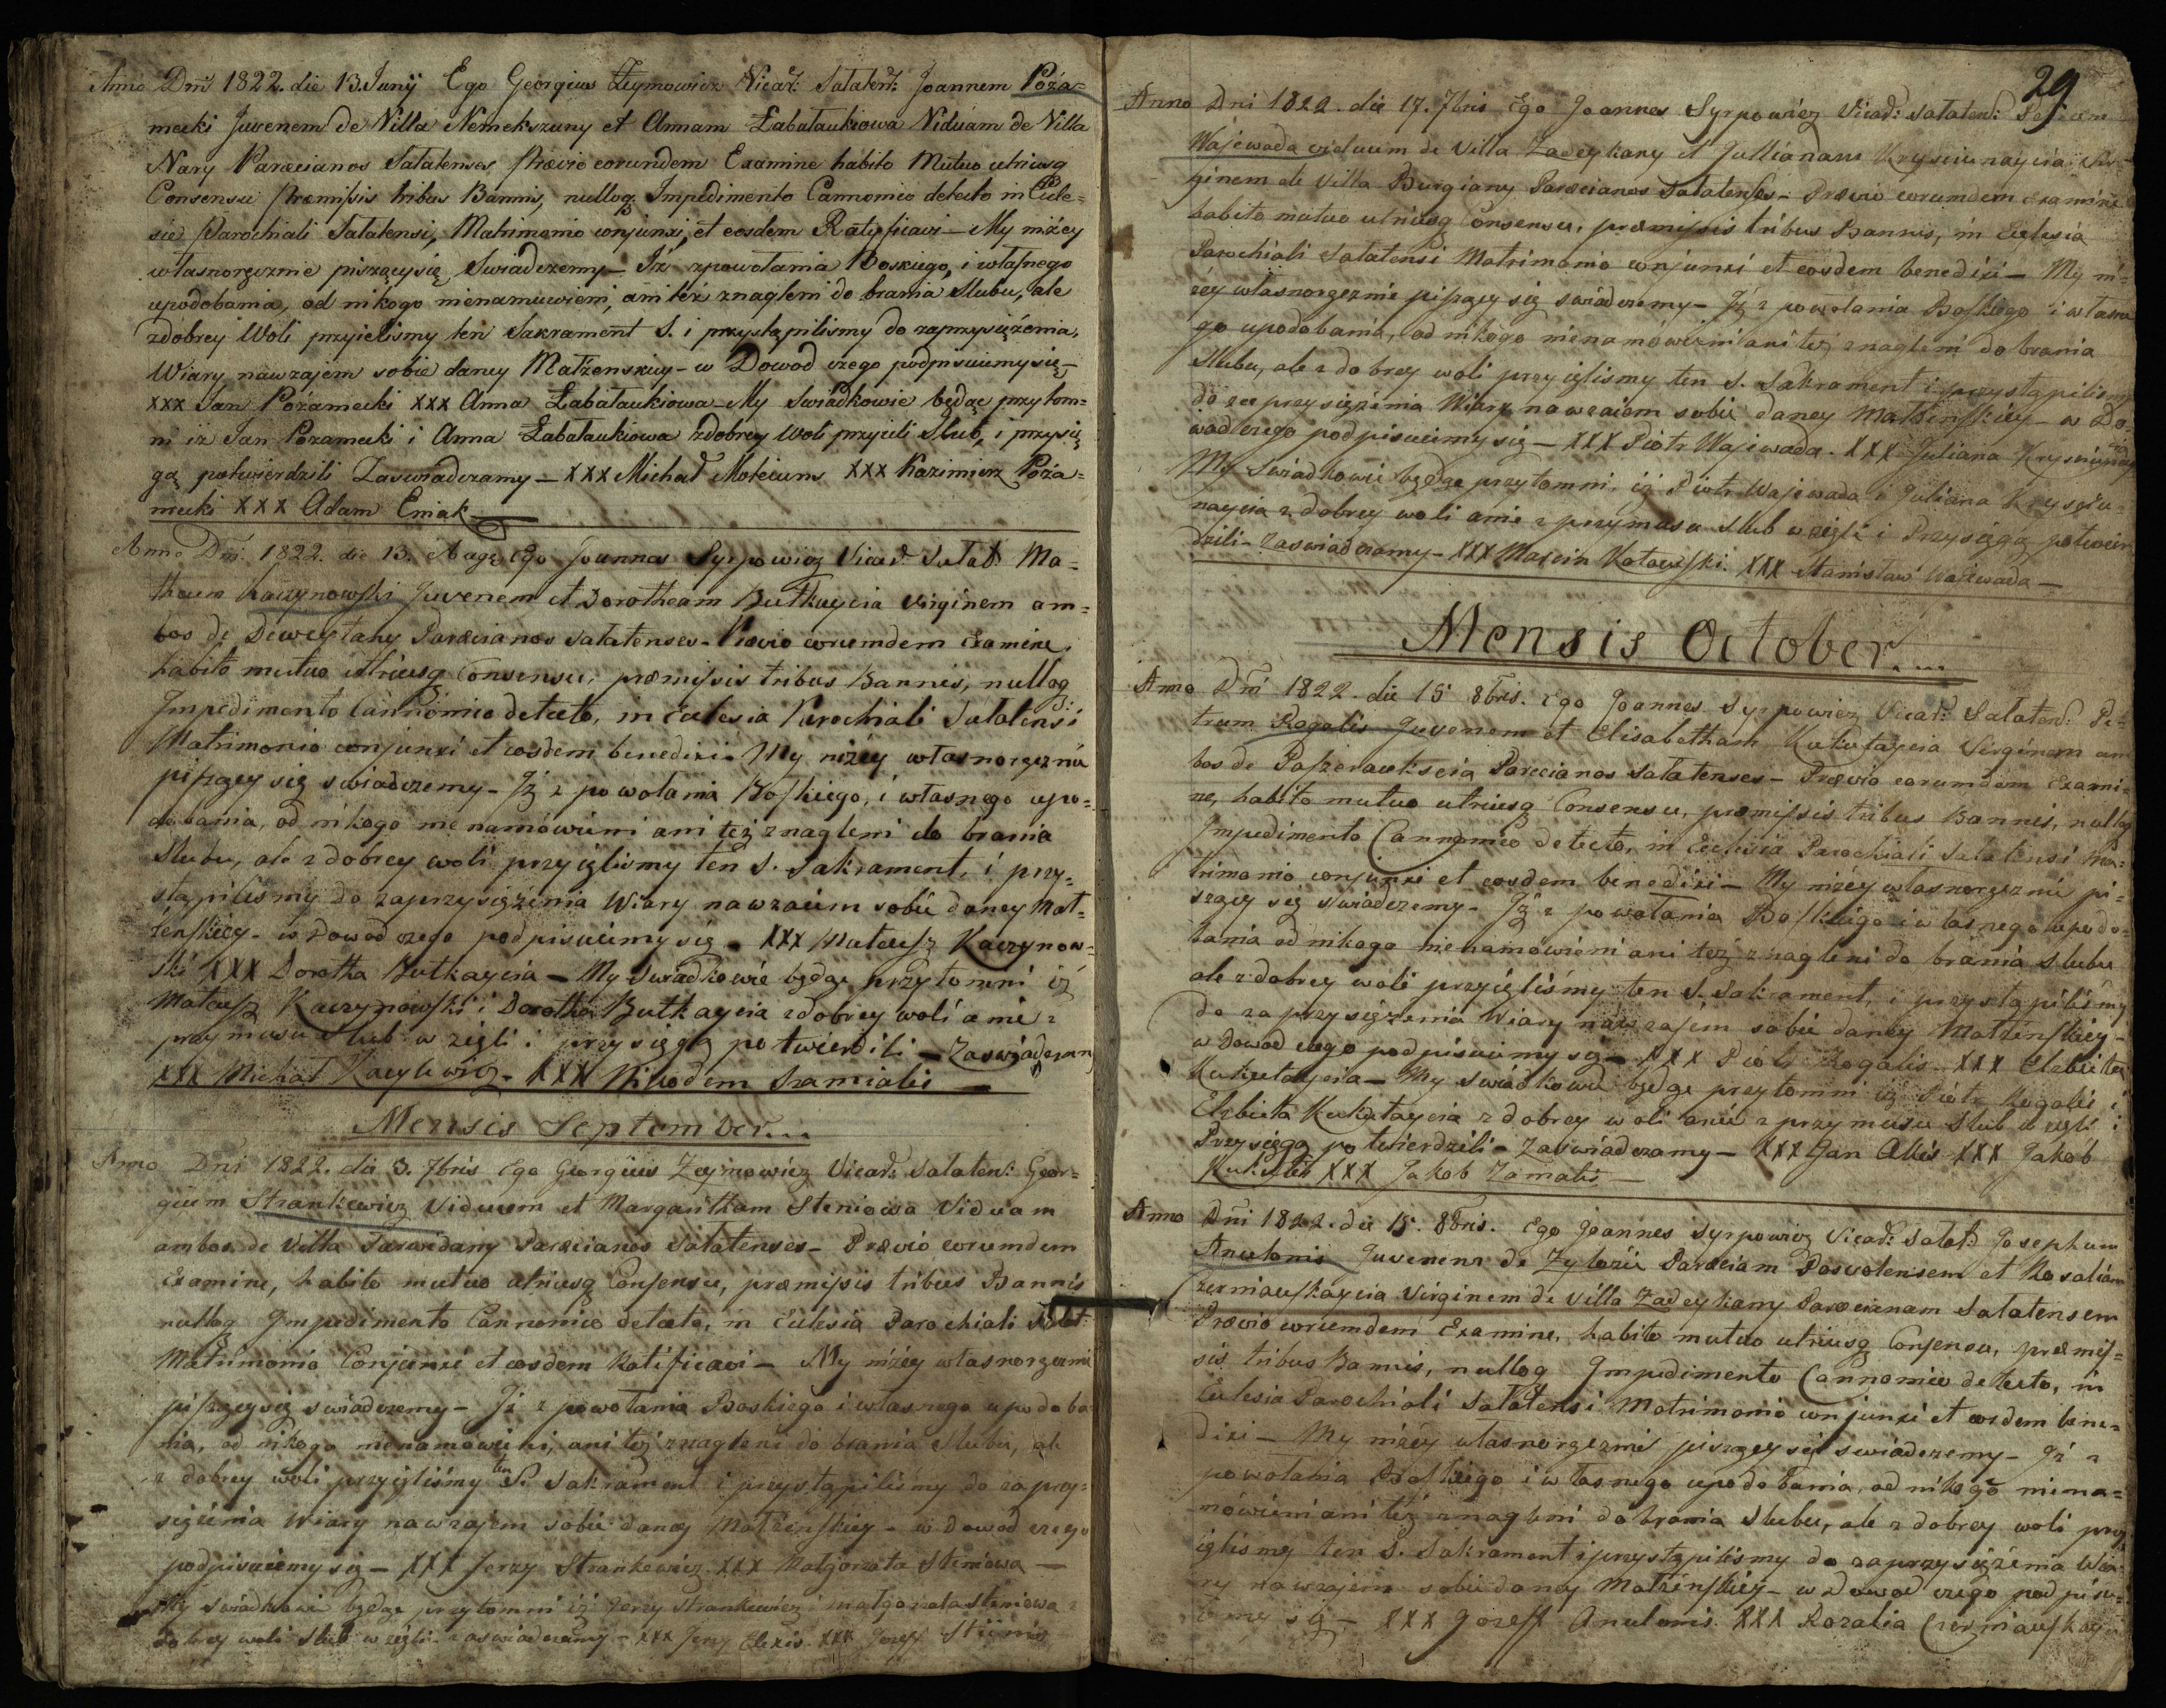 Anno Dni 1822. die 13. Junij Ego Georgius Zeymowicz Vicar: Salaten: Joannem Poża=
mecki Juvenem de Villa Nemekszuny et Annam Łabataukiowa Viduam de Villa
Nary Paræcianos Salatenses, Prævio eorundem Examine habito Mutuo utriusq
Consensu Præmissis tribus Bannis, nulloq Impedimento Cannonico detecto in Ecle=
sia Parochiali Salatensi, Matrimonio conjunxi, et eosdem Ratyficavi — My niżey
własnoręcznie piszącysię Swiadczemy — Iż zpowołania Boskiego, i własnego
upodobania, od nikogo nienamuwieni, ani też znagleni do brania Slubu, ale
zdobrey Woli przyielismy ten Sakrament S. i przystąpilismy do zaprzysiężenia,
Wiary nawzajem sobie daney Małżenskiey - w Dowod czego podpisuiemysię —
xxx Jan Pożamecki xxx Anna Łabataukiowa — My Swiadkowie będąc przytom=
ni iż Jan Pożamecki i Anna Łabataukiowa zdobrey Woli przyieli Slub, i przysię
gą potwierdzili Zaswiadczamy — xxx Michał Moteiuns xxx Kazimierz Poża=
mecki xxx Adam Eniak
Anno Dni: 1822. die 13. Aug: Ego Joannes Syrpowicz Vicar: Salat: Ma=
theum Kaczynowski Juvenem et Dorotheam Butkaycia Virginem am=
bos de Deweytany Paræcianos Salatenses - Prævio eorumdem Examine,
habito mutuo utriusq Consensu, præmissis tribus Bannis, nulloq
Impedimento Cannonico detecto, in Eclesia Parochiali Salatensi
Matrimonio conjunxi et eosdem benedixi - My niżey własnoręcznie
piszący się swiadczemy - Iż z powołania Boskiego, i własnego upo=
dobania, od nikogo nie namówieni ani też znagleni do brania
Slubu, ale z dobrey woli przyięlismy ten S. Sakrament, i przy=
stąpilismy do zaprzysiężenia Wiary nawzaiem sobie daney Mał=
żenskiey - w Dowod czego podpisuiemy się - XXX Mateusz Kaczynow=
ski XXX Dorotha Butkaycia - My Swiadkowie będąc przytomni iż
Mateusz Kaczynowski i Dorotha Butkaycia z dobrey woli a nie z
przymusu Slub wzięli i przysięgą potwierdzili - Zaswiadczamy
XXX Michał Kacylewicz - XXX Nikodem Szamialis
Mensis September...
Anno Dni 1822. die 3. 7bris Ego Georgius Zeymowicz Vicar: Salaten: Geor=
gium Strankiewicz Viduum et Margaritham Steniowa Viduam
ambos de Villa Parovidany Paræcianos Salatenses - Prævio eorumdem
Examine, habito mutuo utriusq Consensu, præmissis tribus Bannis
nulloq Impedimento Cannonico detecto, in Eclesia Parochiali Salat:
Matrimonio Conjunxi et eosdem Ratificavi - My niżey własnoręcznie
piszący się swiadczemy - Iż z powołania Boskiego i własnego upodoba
nia, od nikogo nienamówieni, ani też znagleni do brania Slubu, ale
z dobrey woli przyięliśmy ten S. Sakrament i przystąpiliśmy do zaprzy=
siężenia Wiary nawzajem sobie daney Małżenskiey - w dowod czego
podpisuiemy się - XXX Jerzy Strankiewicz XXX Małgorzata Steniowa —
My Swiadkowie będąc przytomni iż Jerzy Strankiewicz i Małgorzata Steniowa z
dobrey woli Slub wzięli zaswiadczamy - XXX Jerzy Elexis XXX Jozeff
29
Anno Dni 1822. die 17. 7bris Ego Joannes Syrpowicz Vicar: Salaten:
Wajewada viduum de Villa Zadeykany et Jullianam Krysciunaycia Vir=
ginem de Villa Burgiany Paræcianos Salatenses - Prævio eorumdem Examine
habito mutuo utriusq Consensu, præmissis tribus Bannis, in Eclesia
Parochiali Salatensi Matrimonio conjunxi et eosdem benedixi - My ni=
żey własnoręcznie piszący się swiadczemy - Iż z powołania Boskiego i własne
go upodobania, od nikogo nienamówieni ani też znagleni do brania
Slubu, ale z dobrey woli przyięlismy ten S. Sakrament i przystąpilismy
do zaprzysiężenia Wiary nawzaiem sobie daney Małżenskiey - w Do=
wod czego podpisuiemy się - XXX Piotr Wajewada. XXX Juliana Krysciunay
My Swiadkowie będąc przytomni, iż Piotr Wajewada i Juliana Krysciu=
naycia z dobrey woli a nie z przymusu Slub wzięli i Przysięgą potwier
dzili - Zaswiadczamy - XXX Marcin Katowski. XXX Stanisław Wajewada —
Mensis October....
Anno Dni 1822. die 15 8bris. Ego Joannes Syrpowicz Vicar: Salaten: Pe=
trum Rogalis Juvenem et Elisabetham Kukutaycia Virginem am
bos de Paszeraukscia Parecianos Salatenses - Prævio eorumdem Exami=
ne, habito mutuo utriusq Consensu, præmissis tribus Bannis, nulloq
Impedimento Cannonico detecto, in Eclesia Parochiali Salatensi Ma=
trimonio conjunxi et eosdem benedixi - My niżey własnoręcznie pi=
szący się swiadczemy - Iż z powołania Boskiego i własnego upodo=
bania od nikogo nienamówieni ani też znagleni do brania Slubu
ale z dobrey woli przyięliśmy ten S. Sakrament, i przystąpiliśmy
do zaprzysiężenia Wiary nawzajem sobie daney Małżenskiey -
w dowod czego podpisuiemy się - XXX Piotr Rogalis XXX Elzbieta
Kukutaycia - My Swiadkowie będąc przytomni iż Piotr Rogalis i
Elzbieta Kukutaycia z dobrey woli a nie z przymusu Slub wzięli i
Przysięgą potwierdzili - Zaswiadczamy - XXX Jan Akis XXX Jakób
XXX Jakob Zamalis —
Anno Dni 1822. die 15. 8bris. Ego Joannes Syrpowicz Vicar: Salat: Josephum
Anulonis Juvenem de Zylorii Paræciam Poswolensem et Rosaliam
zerniauskaycia Virginem de Villa Zadeykany Paræcianam Salatensem
Prævio eorumdem Examine, habito mutuo utriusq Consensu, præmis=
sis tribus Bannis, nulloq Impedimento Cannonico detecto, in
Eclesia Parochiali Salatensi Matrimonio conjunxi et eosdem bene=
dixi - My niżey własnoręcznie piszący się swiadczemy - Iż z
powołania Boskiego i własnego upodobania, od nikogo niena=
mówieni ani też znagleni do brania Slubu, ale z dobrey woli przy
ięlismy ten S. Sakrament i przystąpilismy do zaprzysiężenia Wia=
ry nawzajem sobie daney Małżenskiey - w dowod czego podpisu=
iemy się - XXX Jozeff Anulonis. XXX Rozalia Czerniauskay